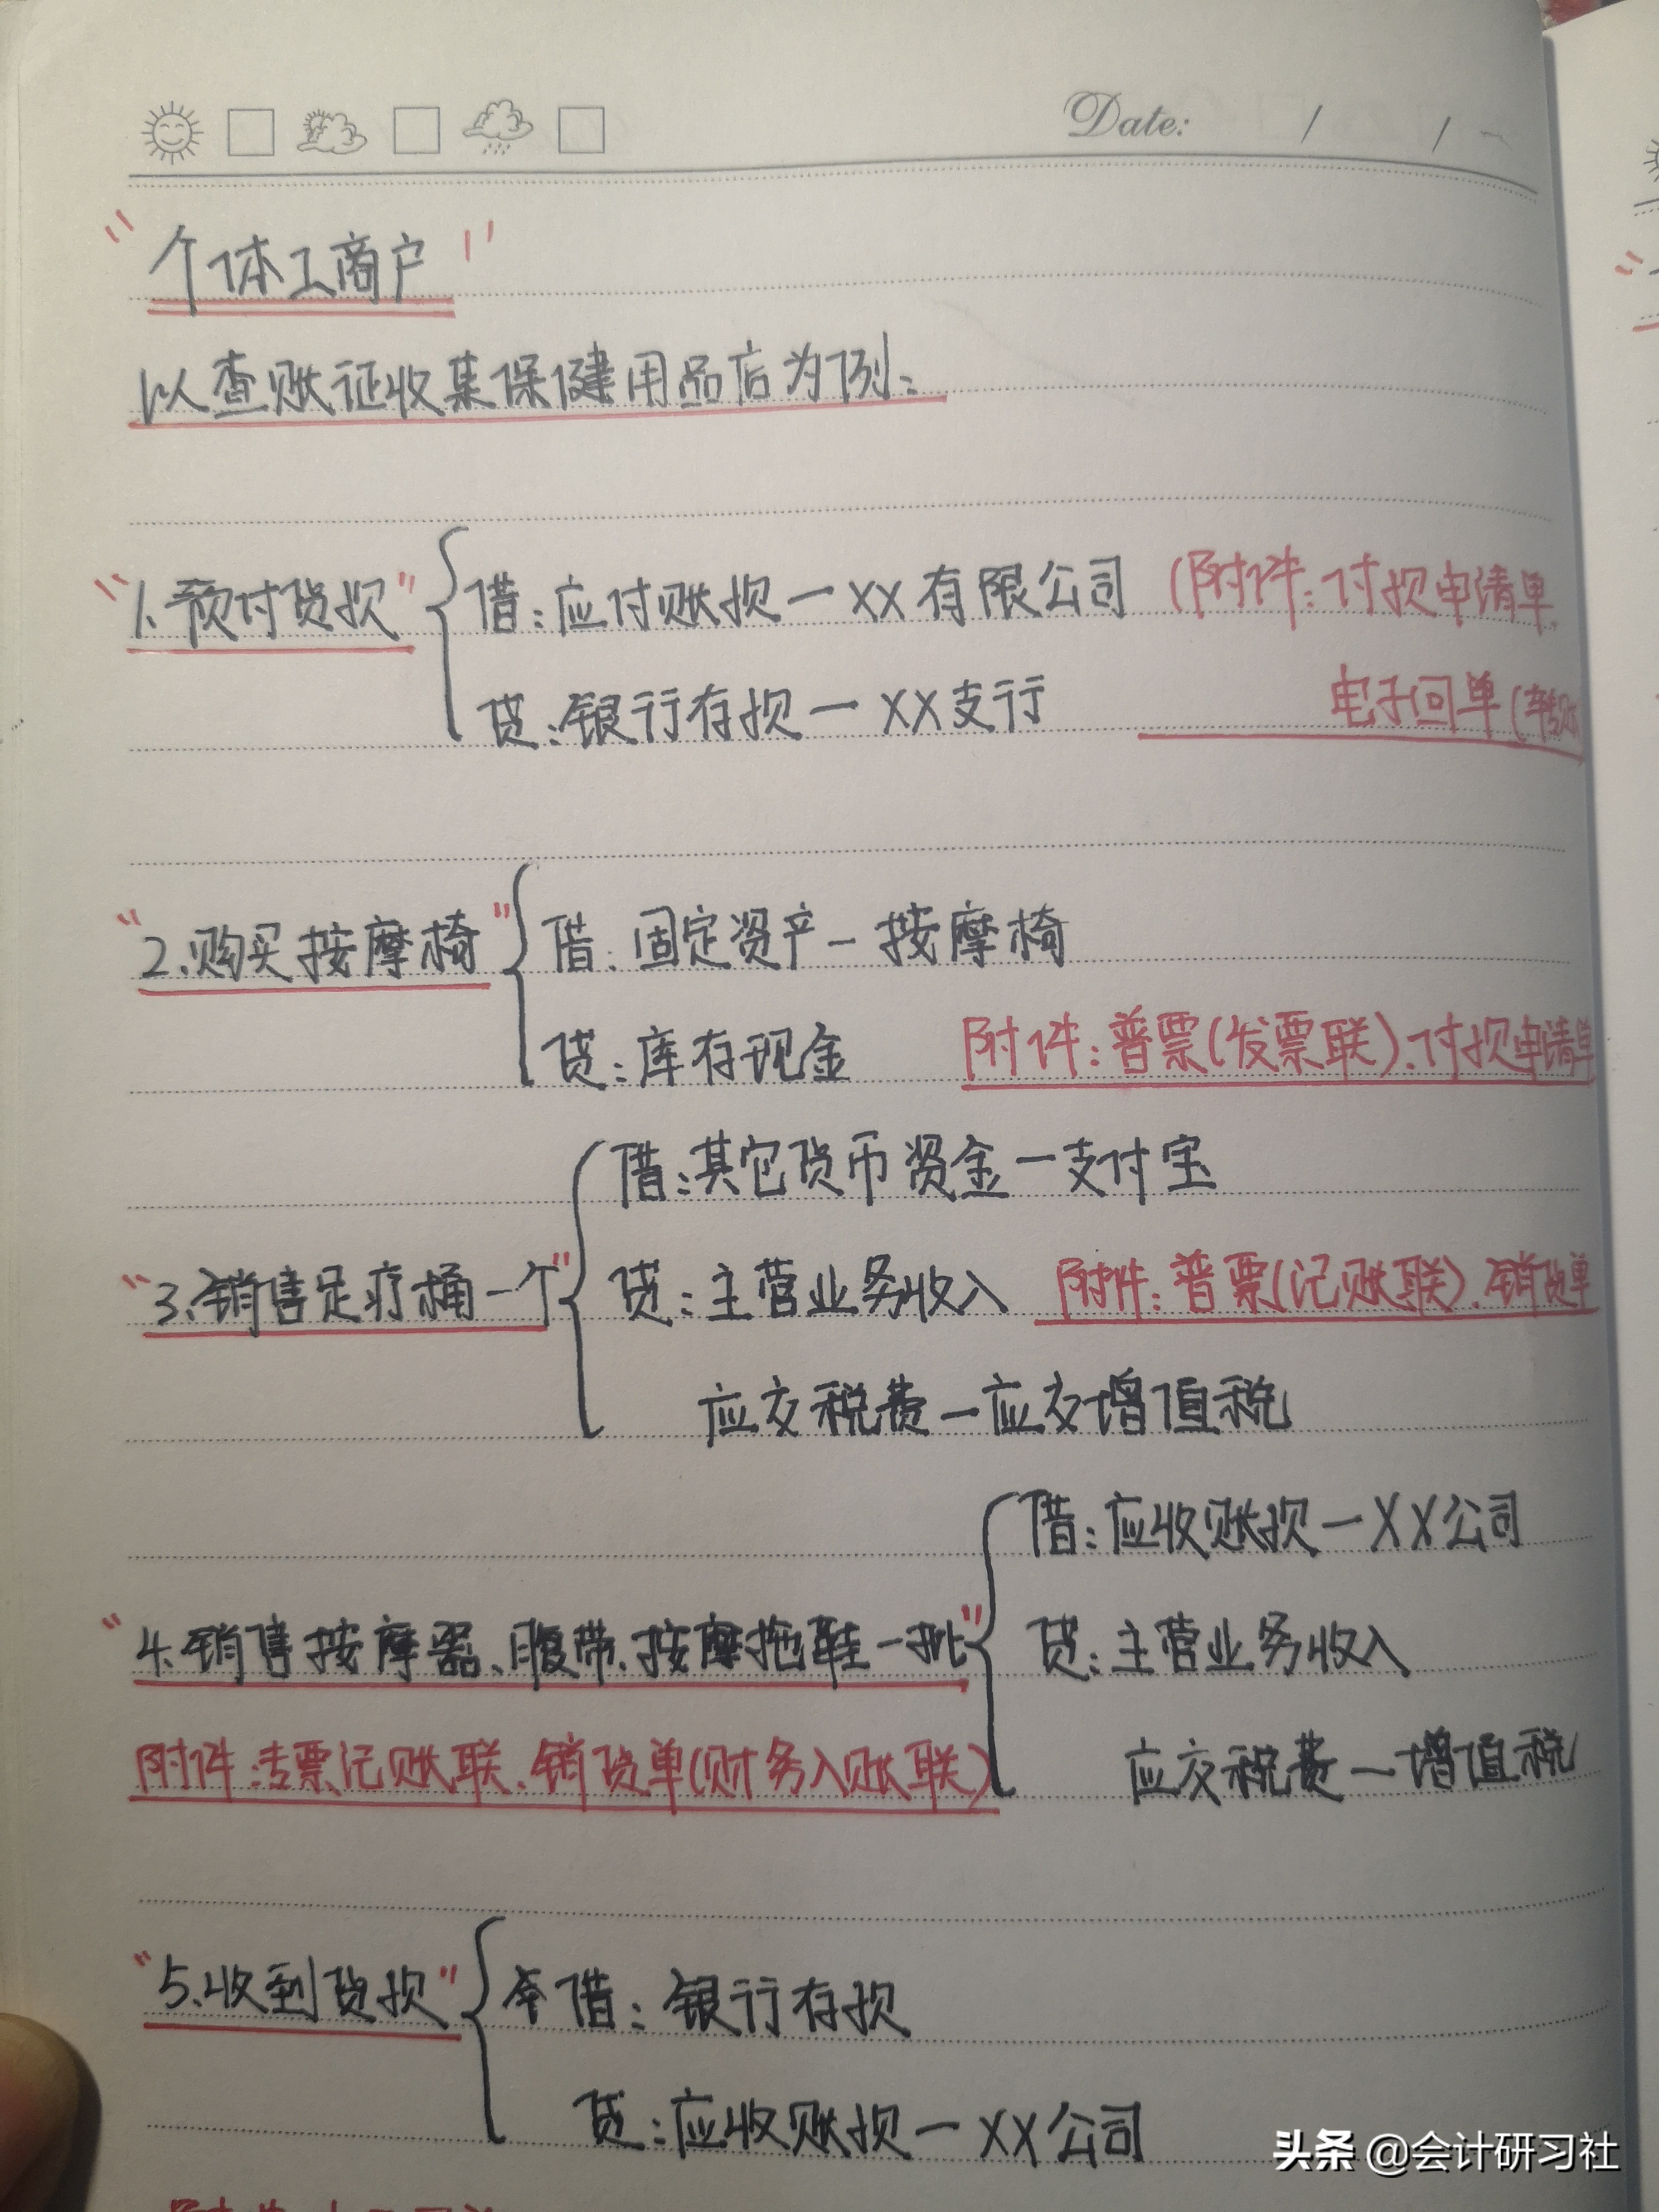 Date: / /
"个体工商户"
以查账征收集保健用品店为例:
"1.预付货款" 借:应付账款—XX有限公司 (附件:付款申请单.
贷:银行存款—XX支行 电子回单(转账
"2.购买按摩椅" 借:固定资产—按摩椅
贷:库存现金 附件:普票(发票联).付款申请单
借:其它货币资金—支付宝
"3.销售足疗桶一个" 贷:主营业务收入 附件:普票(记账联).销货单
应交税费—应交增值税
借:应收账款—XX公司
"4.销售按摩器、腹带.按摩拖鞋一批" 贷:主营业务收入
附件:专票记账联.销货单(财务入账联) 应交税费—增值税
"5.收到货款" 借:银行存款
贷:应收账款—XX公司
头条 @会计研习社